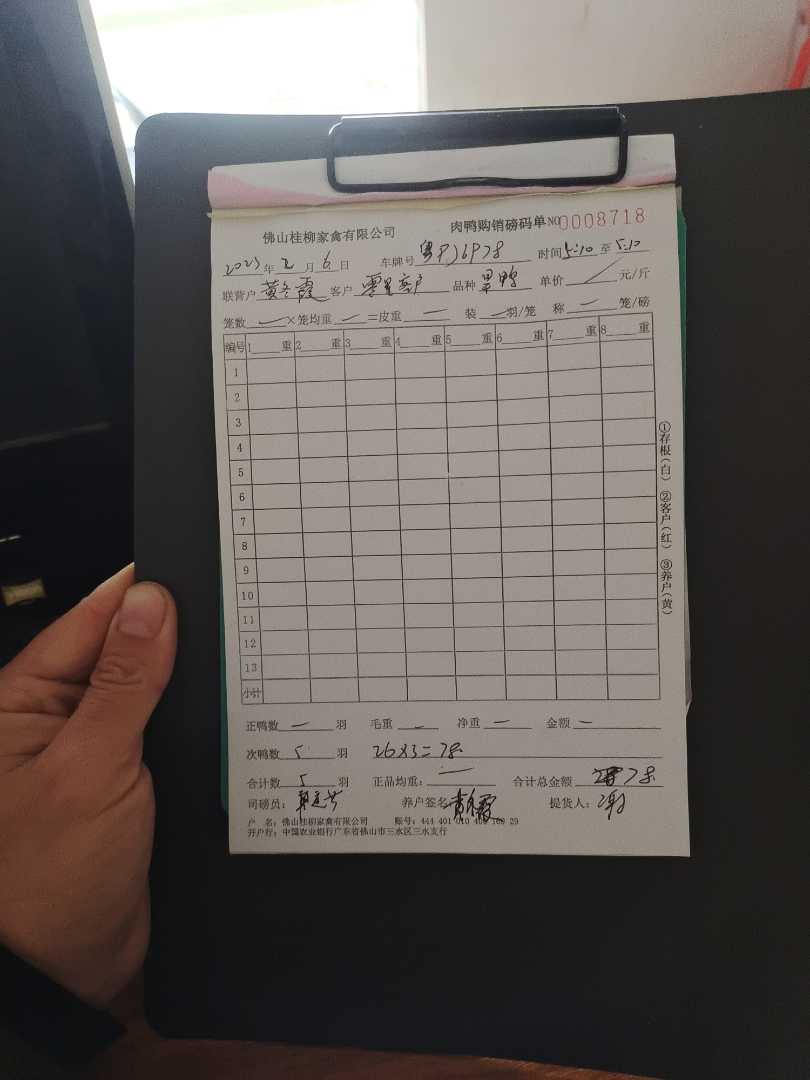 佛山桂柳家禽有限公司 肉鸭购销磅码单 NO 0008718
2023年2月6日 车牌号 时间 5:10 至 5:10
联营户 黄冬霞 客户 零星客户 品种 旱鸭 单价 / 元/斤
笼数 — ×笼均重 — =皮重 — 装 — 羽/笼 称 — 笼/磅
编号 1 重 2 重 3 重 4 重 5 重 6 重 7 重 8 重
1
2
3
4
5
6
7
8
9
10
11
12
13
小计
正鸭数 — 羽 毛重 — 净重 — 金额 —
次鸭数 5 羽 26×3=78
合计数 5 羽 正品均重: — 合计总金额 78
司磅员: 养户签名 黄冬霞 提货人: 谢
户 名: 佛山桂柳家禽有限公司 账号: 444 401 010 400 29
开户行: 中国农业银行广东省佛山市三水区三水支行
①存根(白) ②客户(红) ③养户(黄)